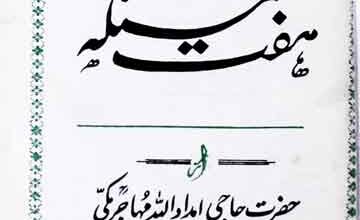 ہفت مسئلہ
از
حضرت حاجی امداد اللہ مہاجر مکیؒ